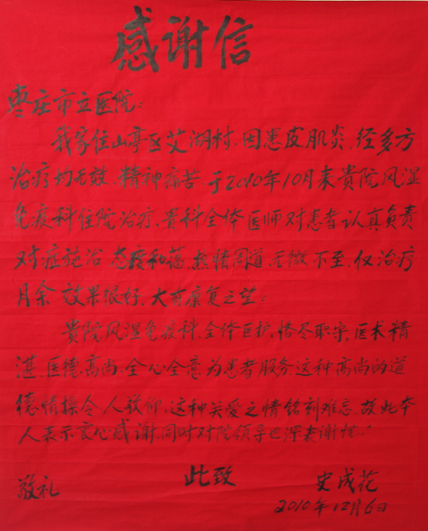 感谢信
枣庄市立医院:
我家住山亭区艾湖村,因患皮肌炎,经多方
治疗均无效,精神痛苦,于2010年10月来贵院风湿
免疫科住院治疗,贵科全体医师对患者认真负责
对症施治,态度和蔼,热情周道,无微不至,仅治疗
月余,效果很好,大有康复之望。
贵院风湿免疫科,全体医护,恪尽职守,医术精
湛,医德高尚,全心全意为患者服务这种高尚的道
德情操令人敬仰,这种关爱之情铭刻难忘,故此本
人表示衷心感谢,同时对院领导也深表谢忱。
此致
敬礼
史成花
2010年12月6日